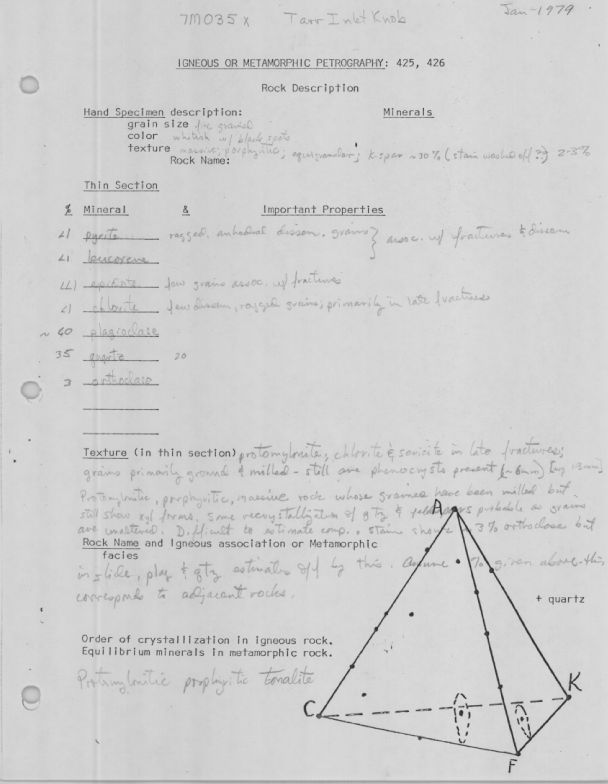 Jan-1979
7M035x Tarr Inlet Knob
IGNEOUS OR METAMORPHIC PETROGRAPHY: 425, 426
Rock Description
Hand Specimen description: Minerals
grain size fine grained
color whitish w/ black spots
texture massive; porphyritic; equigranular; K-spar ~30% (stain washed off ??) 2-3%
Rock Name:
Thin Section
% Mineral & Important Properties
<1 pyrite ragged, anhedral dissem. grains } assoc. w/ fractures & dissem
<1 leucoxene
<<1 epidote few grains assoc. w/ fractures
<1 chlorite few dissem, ragged grains; primarily in late fractures
~ 60 plagioclase
35 quartz 20
3 orthoclase
Texture (in thin section) protomylonite; chlorite & sericite in late fractures;
grains primarily ground & milled - still are phenocrysts present
Protomylonitic, porphyritic, massive rock whose grains have been milled but
still show forms. Some recrystallization of qtz & probable as grains
are unaltered. Difficult to estimate comp., stain shows 3% orthoclase but
Rock Name and Igneous association or Metamorphic
facies
in slide, plag & qtz estimates off by this. Assume % given above
corresponds to adjacent rocks.
A
+ quartz
Order of crystallization in igneous rock.
Equilibrium minerals in metamorphic rock.
Protomylonitic porphyritic tonalite
K
C
F